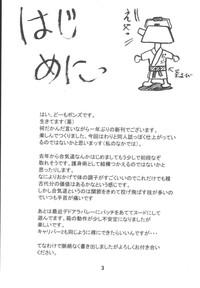 はじめにっ
えやっ
はい、どーもボンズです。
生きてます(藁)
何だかんだ言いながら一年ぶりの新刊でございます。
楽しんでつくりました、今回はわりと同人誌っぽく仕上がっているのではないかと思いまっす(私のなかでは)。
去年から合気道なんかはじめてもう少しで初段なぞ
取れそうです。護身術として結構つかえるのではないかと
思ったりします。
なによりおかげで体の調子がすごいいので
古代分の価値はあるかなという感じです。
しかし合気道というのは関節をきめて投げ飛ばす技が多い
ので当たり前ですがとても痛いです。
あとは最近デドアラバレーにパッチをあててヌードにして
遊んでます。箱の動作が少し不安定になりましたが
楽しいです。
キャリバー2も同じように裸にできたらいいんですが…。
てなわけで脈絡なく書き出しましたがよろしくお付き合い
ください。
3